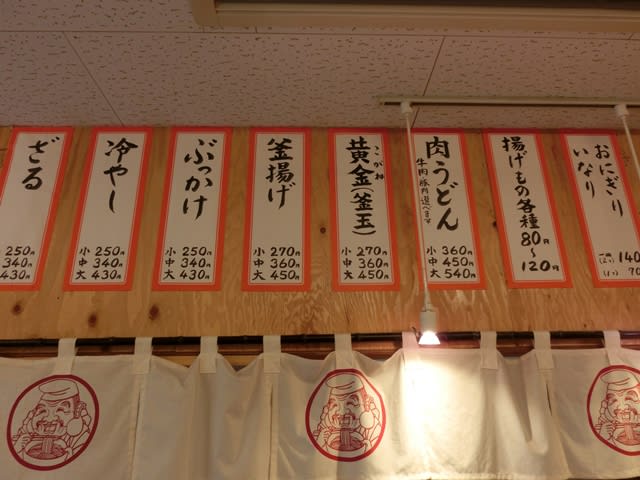 ざる
250円
340円
430円
冷やし
小 250円
中 340円
大 430円
ぶっかけ
小 250円
中 340円
大 430円
釜揚げ
小 270円
中 360円
大 450円
黄金(釜玉)
こがね
小 270円
中 360円
大 450円
肉うどん
牛肉・豚肉選べます
小 360円
中 450円
大 540円
揚げもの各種
80円
～120円
おにぎり
いなり
140